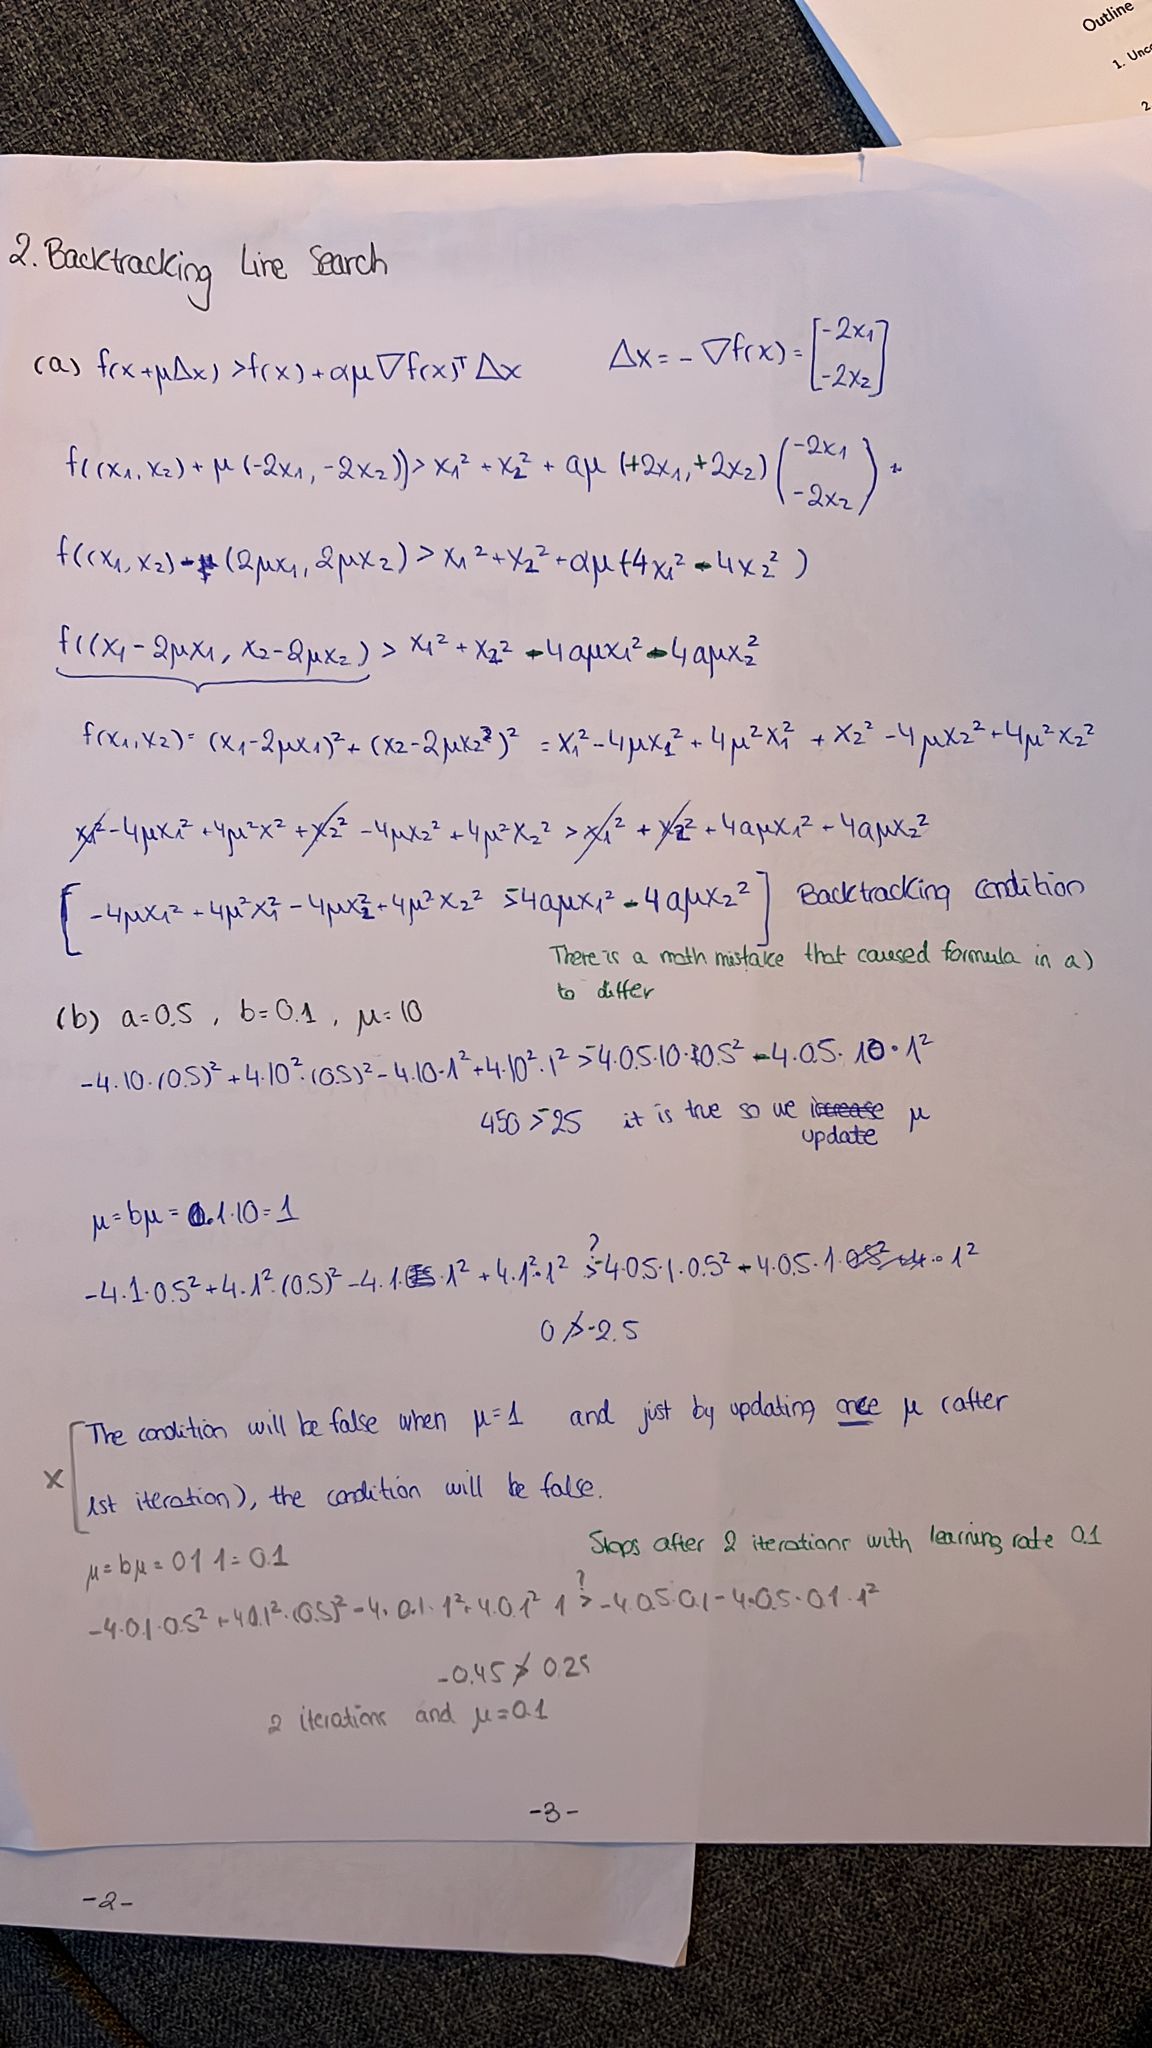 Outline
1. Unc
2
2. Backtracking Line Search
(a) f(x+μΔx) > f(x) + αμ ∇f(x)ᵀ Δx    Δx = - ∇f(x) = [-2x₁ -2x₂]
f((x₁, x₂) + μ (-2x₁, -2x₂)) > x₁² + x₂² + aμ (+2x₁, +2x₂) (-2x₁ -2x₂)
f((x₁, x₂) - (2μx₁, 2μx₂) > x₁² + x₂² + αμ (-4x₁² - 4x₂²)
f((x₁ - 2μx₁, x₂ - 2μx₂) > x₁² + x₂² - 4aμx₁² - 4aμx₂²
f(x₁, x₂) = (x₁ - 2μx₁)² + (x₂ - 2μx₂)² = x₁² - 4μx₁² + 4μ²x₁² + x₂² - 4μx₂² + 4μ²x₂²
x₁² - 4μx₁² + 4μ²x² + x₂² - 4μx₂² + 4μ²x₂² > x₁² + x₂² + 4aμx₁² + 4aμx₂²
[-4μx₁² + 4μ²x₁² - 4μx₂² + 4μ²x₂² > -4aμx₁² - 4aμx₂²] Backtracking condition
There is a math mistake that caused formula in a)
to differ
(b) a=0.5, b=0.1, μ=10
-4.10.(0.5)² + 4.10².(0.5)² - 4.10.1² + 4.10².1² > -4.0.5.10.0.5² - 4.0.5.10.1²
450 > -25 it is true so we increase μ
update
μ = bμ = 0.1.10 = 1
-4.1.0.5² + 4.1².(0.5)² - 4.1.1² + 4.1².1² >? -4.0.5.1.0.5² - 4.0.5.1.1²
0 ≯ -2.5
The condition will be false when μ=1 and just by updating once μ (after
1st iteration), the condition will be false.
x
μ = bμ = 0.1 1 = 0.1
Stops after 2 iterations with learning rate 0.1
-4.0.1.0.5² + 4.0.1².(0.5)² - 4.0.1.1² + 4.0.1² 1 >? -4.0.5.0.1 - 4.0.5.0.1.1²
-0.45 ≯ 0.25
2 iterations and μ=0.1
-3-
-2-